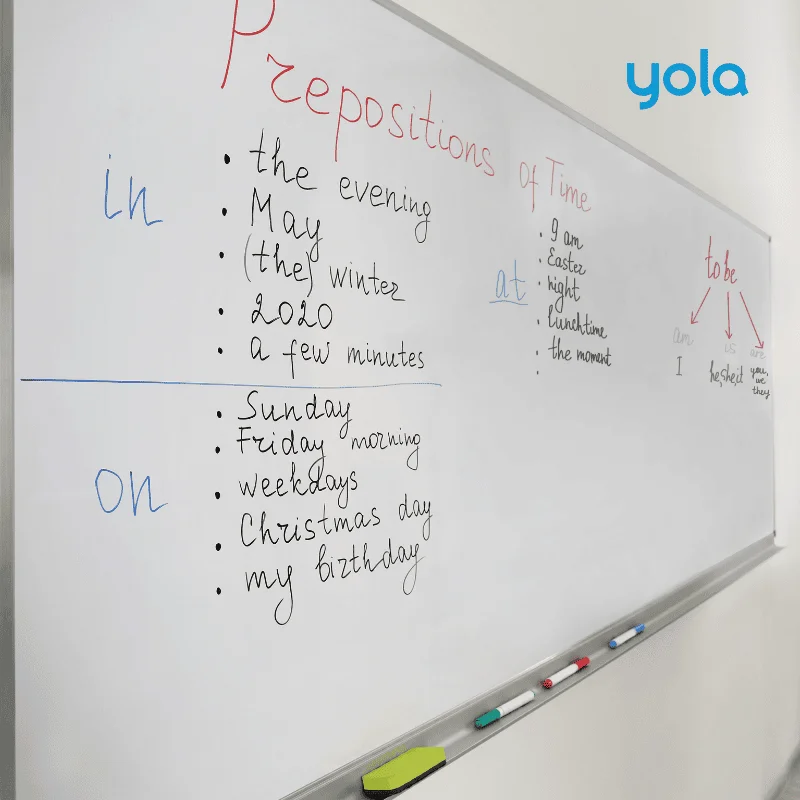 yola
Prepositions of Time
in
• the evening
• May
• (the) winter
• 2020
• a few minutes
on
• Sunday
• Friday morning
• weekdays
• Christmas day
• my birthday
at
• 9 am
• Easter
• night
• lunchtime
• the moment
•
to be
am is are
I he,she,it you,
we
they